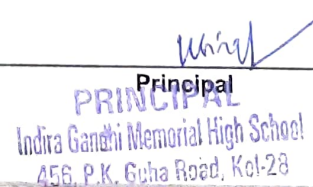 Principal
PRINCIPAL
Indira Gandhi Memorial High School
456, P.K. Guha Road, Kol-28